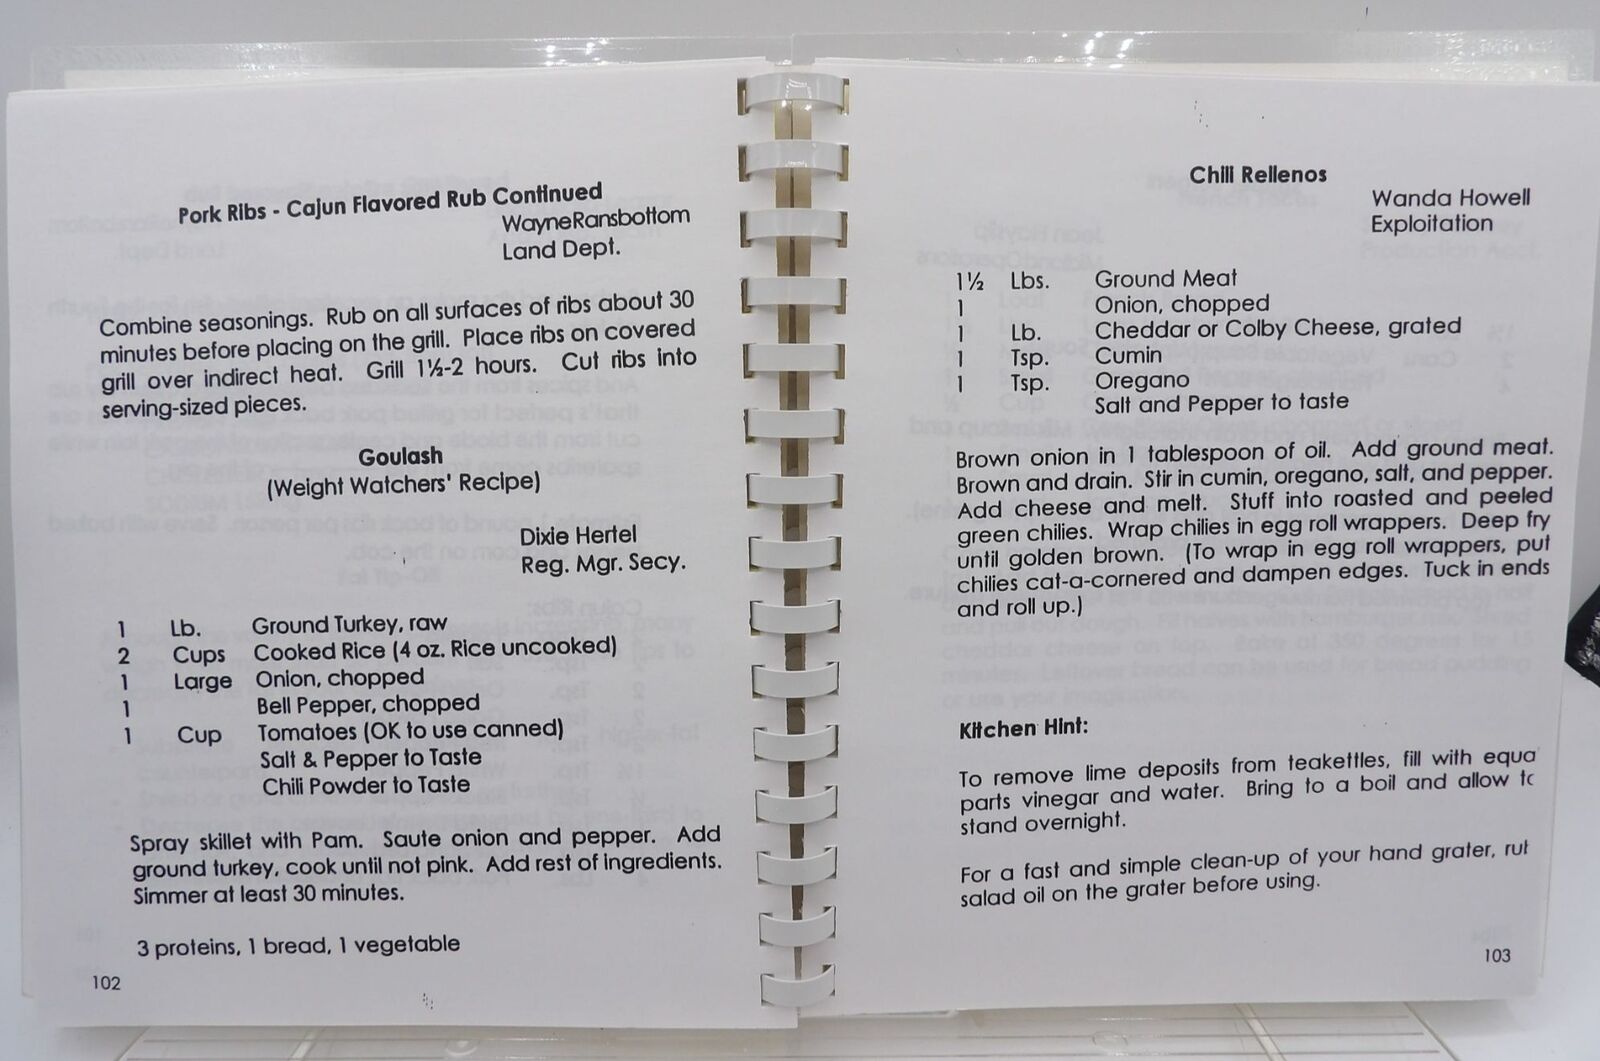 Pork Ribs - Cajun Flavored Rub Continued
WayneRansbottom
Land Dept.
Combine seasonings. Rub on all surfaces of ribs about 30
minutes before placing on the grill. Place ribs on covered
grill over indirect heat. Grill 1½-2 hours. Cut ribs into
serving-sized pieces.
Goulash
(Weight Watchers' Recipe)
Dixie Hertel
Reg. Mgr. Secy.
1 Lb. Ground Turkey, raw
2 Cups Cooked Rice (4 oz. Rice uncooked)
1 Large Onion, chopped
1 Bell Pepper, chopped
1 Cup Tomatoes (OK to use canned)
Salt & Pepper to Taste
Chili Powder to Taste
Spray skillet with Pam. Saute onion and pepper. Add
ground turkey, cook until not pink. Add rest of ingredients.
Simmer at least 30 minutes.
3 proteins, 1 bread, 1 vegetable
102
Chili Rellenos
Wanda Howell
Exploitation
1½ Lbs. Ground Meat
1 Onion, chopped
1 Lb. Cheddar or Colby Cheese, grated
1 Tsp. Cumin
1 Tsp. Oregano
Salt and Pepper to taste
Brown onion in 1 tablespoon of oil. Add ground meat.
Brown and drain. Stir in cumin, oregano, salt, and pepper.
Add cheese and melt. Stuff into roasted and peeled
green chilies. Wrap chilies in egg roll wrappers. Deep fry
until golden brown. (To wrap in egg roll wrappers, put
chilies cat-a-cornered and dampen edges. Tuck in ends
and roll up.)
Kitchen Hint:
To remove lime deposits from teakettles, fill with equa
parts vinegar and water. Bring to a boil and allow to
stand overnight.
For a fast and simple clean-up of your hand grater, rub
salad oil on the grater before using.
103